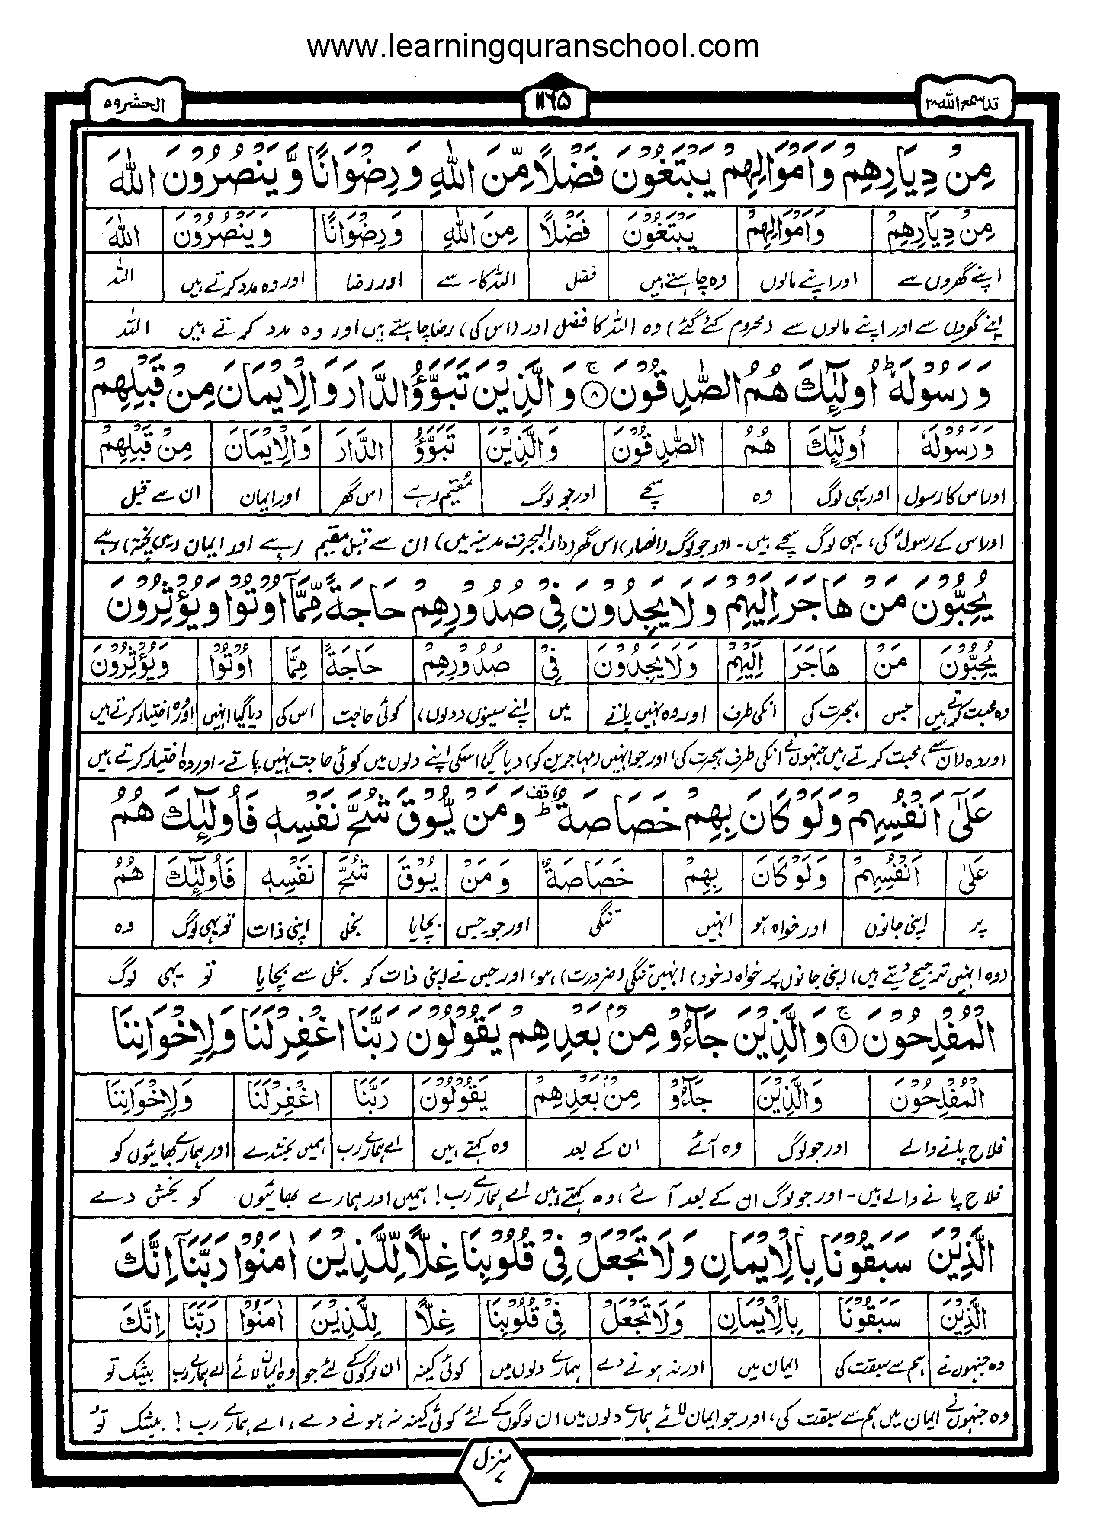 www.learningquranschool.com
قد سمع الله ٢٨
١١٦٥
الحشر ٥٩
مِنْ دِيَارِهِمْ وَاَمْوَالِهِمْ يَبْتَغُوْنَ فَضْلًا مِّنَ اللّٰهِ وَرِضْوَانًا وَّيَنْصُرُوْنَ اللّٰهَ
مِنْ دِيَارِهِمْ وَاَمْوَالِهِمْ يَبْتَغُوْنَ فَضْلًا مِنَ اللّٰهِ وَرِضْوَانًا وَيَنْصُرُوْنَ اللّٰهَ
اپنے گھروں سے اور اپنے مالوں وہ چاہتے ہیں فضل اللہ کا۔ سے اور رضا اور وہ مدد کرتے ہیں اللہ
اپنے گھروں سے اور اپنے مالوں سے (محروم کئے گئے) وہ اللہ کا فضل اور (اس کی) رضا چاہتے ہیں اور وہ مدد کرتے ہیں اللہ
وَرَسُوْلَهٗ ؕ اُولٰٓئِكَ هُمُ الصّٰدِقُوْنَ ۚ ۸ وَالَّذِيْنَ تَبَوَّؤُ الدَّارَ وَالْاِيْمَانَ مِنْ قَبْلِهِمْ
وَرَسُوْلَهٗ اُولٰٓئِكَ هُمُ الصّٰدِقُوْنَ وَالَّذِيْنَ تَبَوَّؤُ الدَّارَ وَالْاِيْمَانَ مِنْ قَبْلِهِمْ
اور اس کا رسول اور یہی لوگ وہ سچے اور جو لوگ مقیم رہے اس گھر اور ایمان ان سے قبل
اور اس کے رسولؐ کی، یہی لوگ سچے ہیں۔ اور جو لوگ (انصار) اس گھر (دارالہجرت مدینہ میں) ان سے قبل مقیم رہے اور ایمان (میں پختہ) رہے
يُحِبُّوْنَ مَنْ هَاجَرَ اِلَيْهِمْ وَلَا يَجِدُوْنَ فِيْ صُدُوْرِهِمْ حَاجَةً مِّمَّآ اُوْتُوْا وَيُؤْثِرُوْنَ
يُحِبُّوْنَ مَنْ هَاجَرَ اِلَيْهِمْ وَلَا يَجِدُوْنَ فِيْ صُدُوْرِهِمْ حَاجَةً مِّمَّا اُوْتُوْا وَيُؤْثِرُوْنَ
وہ محبت کرتے ہیں جس ہجرت کی انکی طرف اور وہ نہیں پاتے میں اپنے سینوں (دلوں) کوئی حاجت اس کی دیا گیا انہیں اور وہ اختیار کرتے ہیں
اور وہ (ان سے) محبت کرتے ہیں جنہوں نے انکی طرف ہجرت کی اور جو انہیں (مہاجرین کو) دیا گیا اسکی اپنے دلوں میں کوئی حاجت نہیں پاتے۔ اور وہ اختیار کرتے ہیں
عَلٰٓى اَنْفُسِهِمْ وَلَوْ كَانَ بِهِمْ خَصَاصَةٌ ؕ وَمَنْ يُّوْقَ شُحَّ نَفْسِهٖ فَاُولٰٓئِكَ هُمُ
عَلٰى اَنْفُسِهِمْ وَلَوْ كَانَ بِهِمْ خَصَاصَةٌ وَمَنْ يُوْقَ شُحَّ نَفْسِهٖ فَاُولٰٓئِكَ هُمُ
پر اپنی جانوں اور خواہ ہو انہیں تنگی اور جو جس بچایا بخل اپنی ذات تو یہی لوگ وہ
(وہ انہیں ترجیح دیتے ہیں) اپنی جانوں پر خواہ (خود) انہیں تنگی (ضرورت) ہو، اور جس نے اپنی ذات کو بخل سے بچایا تو یہی لوگ
الْمُفْلِحُوْنَ ۚ ۹ وَالَّذِيْنَ جَآءُوْ مِنْۢ بَعْدِهِمْ يَقُوْلُوْنَ رَبَّنَا اغْفِرْ لَنَا وَلِاِخْوَانِنَا
الْمُفْلِحُوْنَ وَالَّذِيْنَ جَآءُوْ مِنْۢ بَعْدِهِمْ يَقُوْلُوْنَ رَبَّنَا اغْفِرْ لَنَا وَلِاِخْوَانِنَا
فلاح پانے والے اور جو لوگ وہ آئے ان کے بعد وہ کہتے ہیں اے ہمارے رب ہمیں بخشدے اور ہمارے بھائیوں کو
فلاح پانے والے ہیں۔ اور جو لوگ ان کے بعد آئے، وہ کہتے ہیں اے ہمارے رب! ہمیں اور ہمارے بھائیوں کو بخش دے
الَّذِيْنَ سَبَقُوْنَا بِالْاِيْمَانِ وَلَا تَجْعَلْ فِيْ قُلُوْبِنَا غِلًّا لِّلَّذِيْنَ اٰمَنُوْا رَبَّنَآ اِنَّكَ
الَّذِيْنَ سَبَقُوْنَا بِالْاِيْمَانِ وَلَا تَجْعَلْ فِيْ قُلُوْبِنَا غِلًّا لِلَّذِيْنَ اٰمَنُوْا رَبَّنَا اِنَّكَ
وہ جنہوں نے ہم سے سبقت کی ایمان میں اور نہ ہونے دے ہمارے دلوں میں کوئی کینہ ان لوگوں کے لئے جو وہ ایمان لائے اے ہمارے رب بیشک تو
وہ جنہوں نے ایمان میں ہم سے سبقت کی، اور جو ایمان لائے ہمارے دلوں میں ان لوگوں کے لئے کوئی کینہ نہ ہونے دے، اے ہمارے رب! بیشک تو
منزل ٧